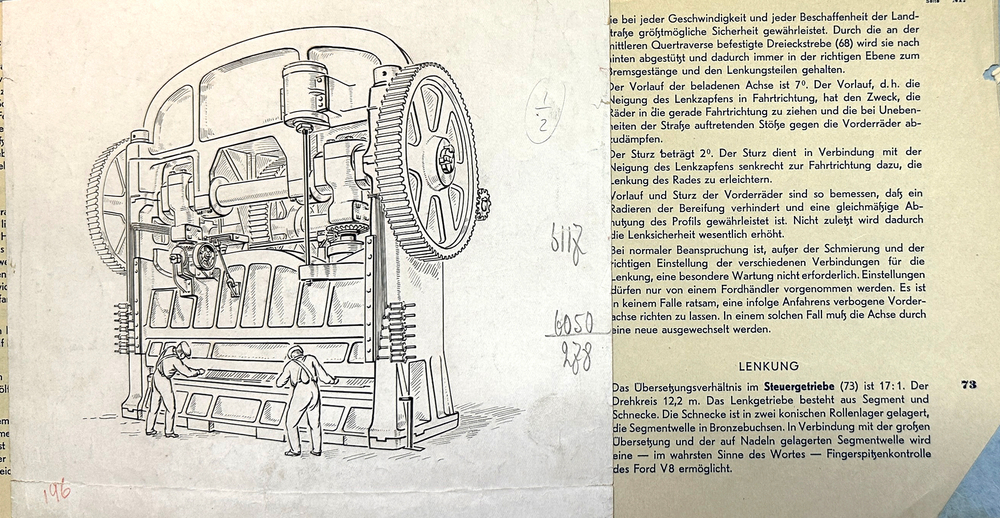 1/2
6117
6050
278
196
ie bei jeder Geschwindigkeit und jeder Beschaffenheit der Land-
traße größtmögliche Sicherheit gewährleistet. Durch die an der
mittleren Quertraverse befestigte Dreieckstrebe (68) wird sie nach
inten abgestützt und dadurch immer in der richtigen Ebene zum
Bremsgestänge und den Lenkungsteilen gehalten.
Der Vorlauf der beladenen Achse ist 7º. Der Vorlauf, d. h. die
Neigung des Lenkzapfens in Fahrtrichtung, hat den Zweck, die
Räder in die gerade Fahrtrichtung zu ziehen und die bei Uneben-
heiten der Straße auftretenden Stöße gegen die Vorderräder ab-
zudämpfen.
Der Sturz beträgt 2º. Der Sturz dient in Verbindung mit der
Neigung des Lenkzapfens senkrecht zur Fahrtrichtung dazu, die
Lenkung des Rades zu erleichtern.
Vorlauf und Sturz der Vorderräder sind so bemessen, daß ein
Radieren der Bereifung verhindert und eine gleichmäßige Ab-
nutzung des Profils gewährleistet ist. Nicht zuletzt wird dadurch
die Lenksicherheit wesentlich erhöht.
Bei normaler Beanspruchung ist, außer der Schmierung und der
richtigen Einstellung der verschiedenen Verbindungen für die
Lenkung, eine besondere Wartung nicht erforderlich. Einstellungen
dürfen nur von einem Fordhändler vorgenommen werden. Es ist
in keinem Falle ratsam, eine infolge Anfahrens verbogene Vorder-
achse richten zu lassen. In einem solchen Fall muß die Achse durch
eine neue ausgewechselt werden.
LENKUNG
Das Übersetzungsverhältnis im Steuergetriebe (73) ist 17:1. Der 73
Drehkreis 12,2 m. Das Lenkgetriebe besteht aus Segment und
Schnecke. Die Schnecke ist in zwei konischen Rollenlager gelagert,
die Segmentwelle in Bronzebuchsen. In Verbindung mit der großen
Übersetzung und der auf Nadeln gelagerten Segmentwelle wird
eine — im wahrsten Sinne des Wortes — Fingerspitzenkontrolle
des Ford V8 ermöglicht.